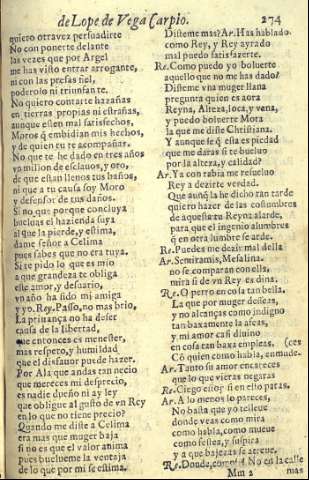 de Lope de Vega Carpio.
274
quiero otra vez persuadirte
No con ponerte delante
las vezes que por Argel
me has visto entrar arrogante,
ni con las presas fiel,
poderoso ni triunfante.
No quiero contarte hazañas
en tierras propias ni estrañas,
aunque estén mal satisfechos,
Moros q̃ embidian mis hechos,
y de quien tu te acompañas.
No que te he dado en tres años
vn millon de esclauos, y oro,
de que estan llenos tus baños,
ni que a tu causa soy Moro
y defensor de tus daños.
Si no que porque concluya
bueluas el hazienda suya
al que la pierde, y estima,
dame señor a Celima
pues sabes que no era tuya.
Si te pido lo que es mio
a que grandeza te obliga
este amor, y desuario,
vn año ha sido mi amiga
y yo. Rey. Passo, no mas brio,
La priuança no ha de ser
causa de la libertad,
que entonces es menester,
mas respeto, y humildad
que el disfauor puede hazer.
Por Ala que andas tan necio
que mereces mi desprecio,
es nadie dueño ni ay ley
que obligue al gusto de vn Rey
en lo que no tiene precio?
Quando me diste a Celima
era mas que muger baja
si no es que el valor anima
pues buelueme la ventaja
de lo que por mi se estima.
Disteme mas? Ar. Has hablado
como Rey, y Rey ayrado
mal puedo satisfazerte.
Re. Como puedo yo boluerte
aquello que no me has dado?
Disteme vna muger llana
pregunta quien es aora
Reyna, Alteza, loca, y vana,
y puedo boluerte Mora
la que me diste Christiana.
Y aunque se q̃ esta es piedad
que me darás si te bueluo
por la alteza, y calidad?
Ar. Ya con rabia me resueluo
Rey a dezirte verdad.
Que aunq̃ la he dicho tan tarde
quiero hazer de las costumbres
de aquesta tu Reyna alarde,
para que el ingenio alumbres
q̃ en otra lumbre se arde.
Re. Puedes me dezir mal della
Ar. Semiramis, Mesalina.
no se comparan con ella,
mira si de vn Rey es dina.
Re. O perro en cosa tan bella.
La que por muger desseas,
y no alcanças como indigno
tan baxamente la afeas,
y mi amor casi diuino
en cosa tan baxa empleas. (ces
Cõ quien como habla, enmude.
Ar. Tanto su amor encareces
que lo que vieras negaras
Re. Ciego estoy si en ello paras.
Ar. A lo menos lo pareces,
No basta que yo te lleue
donde veas como mira
como habla, como mueue
como sestea, y suspira
y a que bajezas se atreue.
Re. Donde, como? A No en la calle
Mm 2
mas